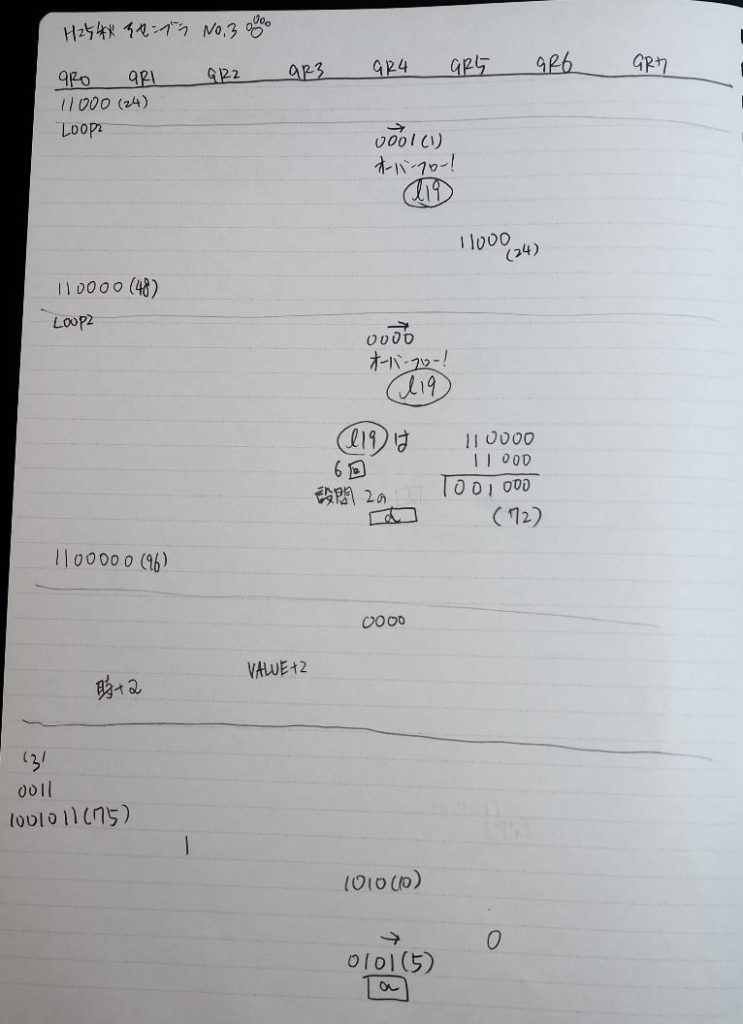 H25秋 アセンブラ No.3
GR0 GR1 GR2 GR3 GR4 GR5 GR6 GR7
11000 (24)
LOOP2
0001(1)
オーバーフロー!
l19
11000
(24)
110000 (48)
LOOP2
0000
オーバーフロー!
l19
l19 は 110000
6回 11000
設問 2の 1001000
d (72)
1100000 (96)
0000
VALUE+2
時+2
'3'
0011
1001011(75)
1
1010(10)
→ 0
0101(5)
a